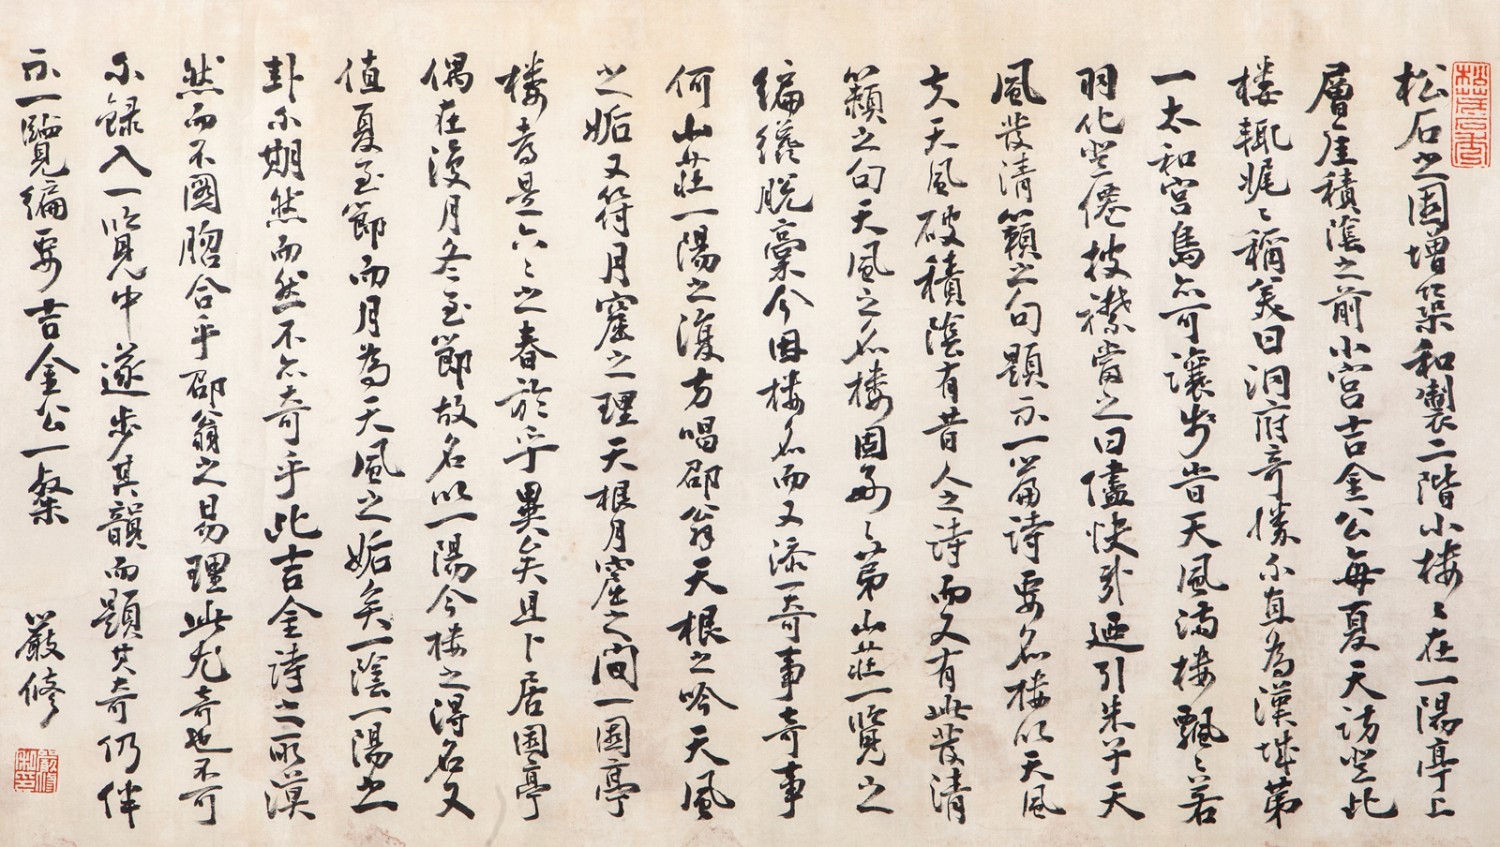 松石之固增築和製二階小樓〻在一陽亭上
層崖積蔭之前小宮吉金公每夏天訪登此
樓輒娓〻稱美曰洞府奇勝不直為漢城第
一太和宮烏亦可讓步昔天風滿樓飄〻若
羽化登僊披襟當之曰儘快哉迺引朱子天
風發清籟之句題示一篇詩要名樓以天風
夫天風破積陰有昔人之詩而又有此發清
籟之句天風之名樓固好〻第山莊一覽之
編纔脫稾今因樓名而又添一奇事奇事
何山莊一陽之復方唱邵翁天根之吟天風
之姤又符月窟之理天根月窟之間一園亭
樓者是六〻之春於乎異矣且卜居園亭
偶在漫月冬至節故名以一陽今樓之得名又
值夏至節而月為天風之姤矣一陰一陽之
卦不期然而然不亦奇乎此吉金詩之所漠
然而不圖脗合乎邵翁之易理此尤奇也不可
不錄入一覽中遂步其韻而題其奇仍伴
示一覽編要吉金公一粲
嚴修